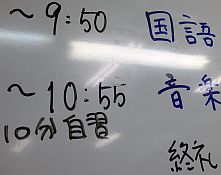 ～9:50 国語
～10:55 音楽
10分自習
終礼